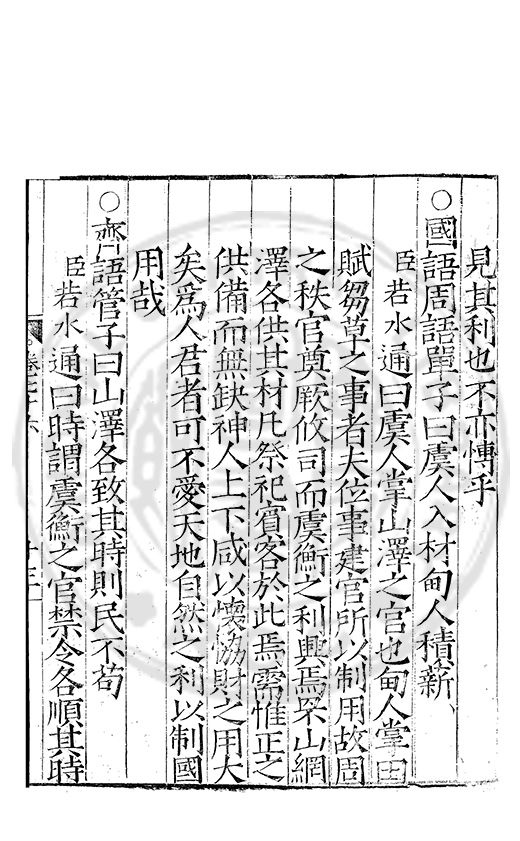 見其利也不亦慱乎
○國語周語單子曰虞人入材甸人積薪
臣若水通曰虞人掌山澤之官也甸人掌田
賦芻草之事者夫位事建官所以制用故周
之秩官奠厥攸司而虞衡之利興焉罘山網
澤各供其材凡祭祀賓客於此焉需惟正之
供備而無缺神人上下咸以懷協財之用大
矣為人君者可不愛天地自然之利以制國
用哉
○齊語管子曰山澤各致其時則民不苟
臣若水通曰時謂虞衡之官禁令各順其時